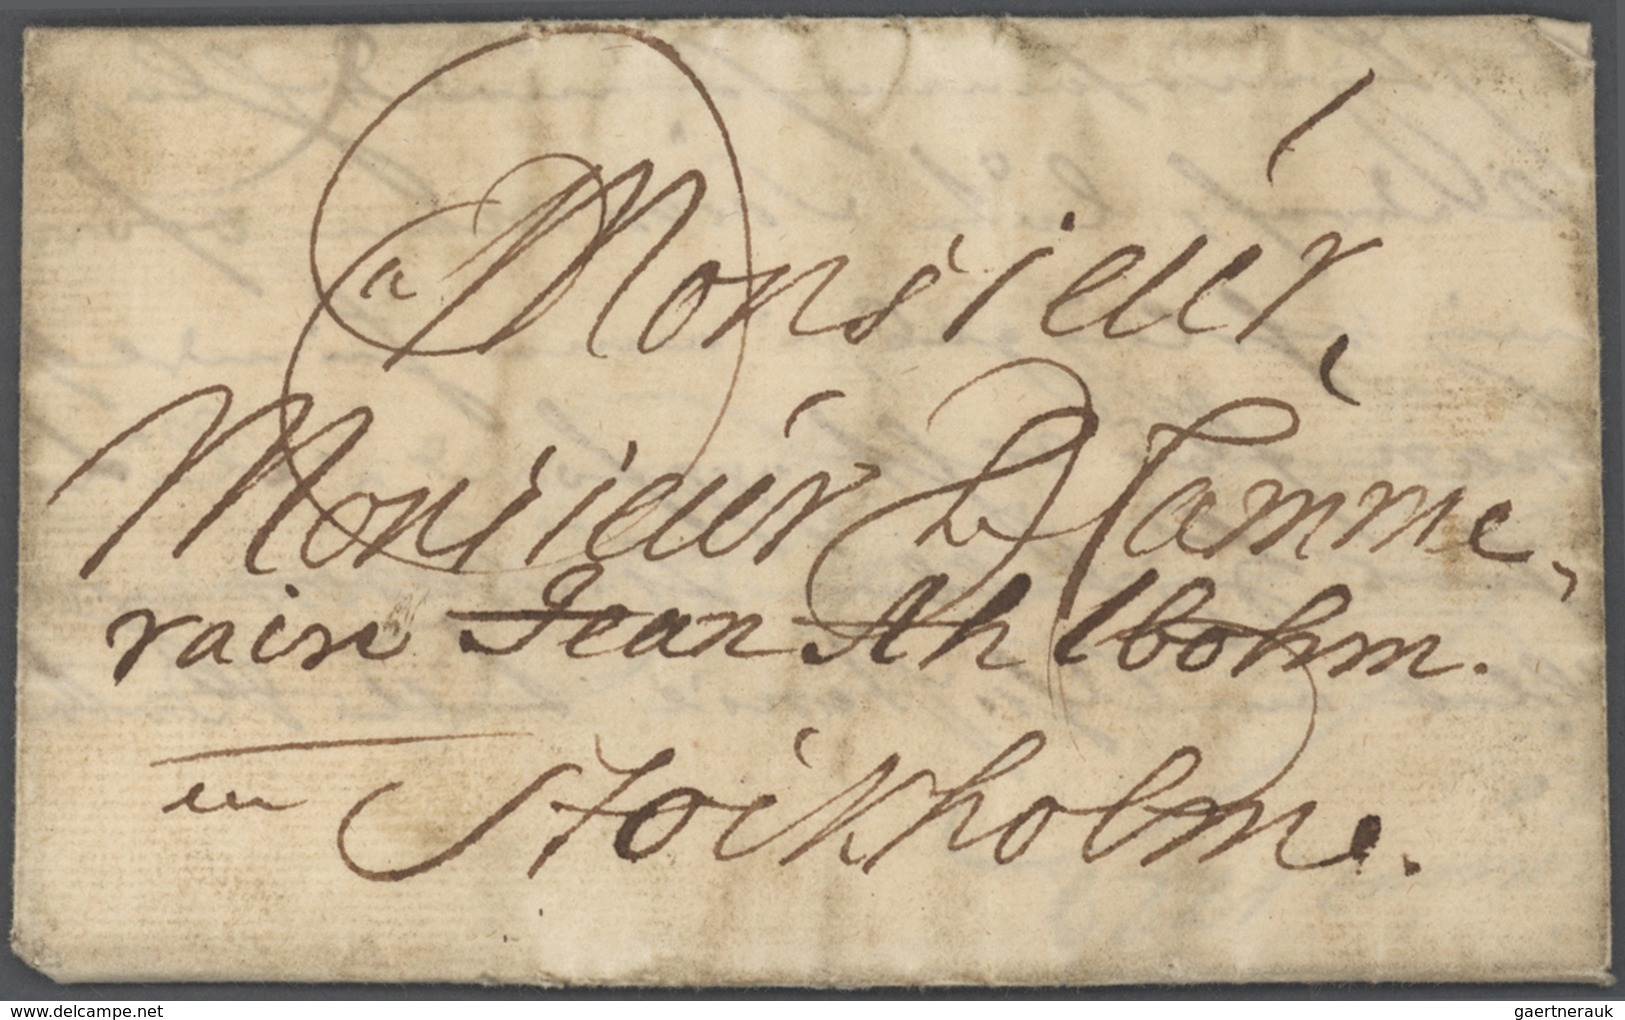 a Monsieur,
Monsieur le Camme,
raire Jean Ahlbohm.
en Stockholm.
www.delcampe.net
gaertnerauk